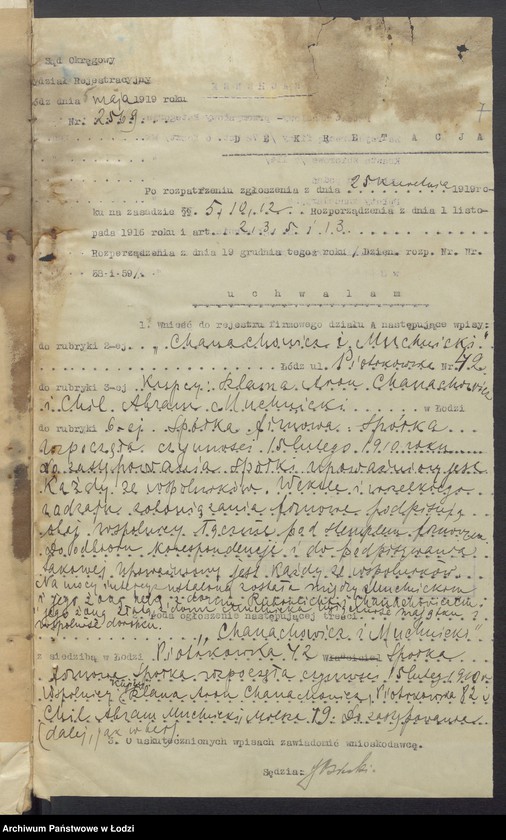 Sąd Okręgowy
Wydział Rejestracyjny
Łódź dnia maja 1919 roku
Nr. 2569
D E K R E T A C J A
Po rozpatrzeniu zgłoszenia z dnia 25 kwietnia 1919 ro-
ku na zasadzie §§. 5, 10, 12. Rozporządzenia z dnia 1 listo-
pada 1916 roku i art. 2, 3, 5 i 13.
Rozporządzenia z dnia 19 grudnia tegoż roku /Dzien. rozp. Nr. Nr.
i 59/
u c h w a l a m
1. Wnieść do rejestru firmowego działu A następujące wpisy:
do rubryki 2-ej „Chanachowicz i Muchnicki"
Łódź ul. Piotrkowska Nr. 42
do rubryki 3-ej Kupcy: Szlama Aron Chanachowicz
i Chil Abram Muchnicki w Łodzi
do rubryki 6-ej Spółka firmowa. Spółka
rozpoczęła czynności 15 lutego 1910 roku
Do zastępowania Spółki upoważniony jest
każdy ze wspólników. Weksle i wszelkiego
rodzaju zobowiązania firmowe podpisują
obaj wspólnicy łącznie pod stemplem firmowym
do odbioru korespondencji i do podpisywania
takowej upoważniony jest każdy ze wspólników.
Na mocy została między Muchnickim
i jego żoną z domu
i jego żoną z domu majątku i
wspólność dorobku.
2. Podać ogłoszenie następującej treści:
„Chanachowicz i Muchnicki"
z siedzibą w Łodzi Piotrkowska 42 Właściciel Spółka
firmowa Spółka rozpoczęła czynności 15 lutego 1910 r.
Wspólnicy kupcy Szlama Aron Chanachowicz, Piotrkowska 82 i
Chil Abram Muchnicki 19. Do zastępowania
(dalej, jak wyżej)
3. O uskutecznionych wpisach zawiadomić wnioskodawcę.
Sędzia:
Archiwum Państwowe w Łodzi